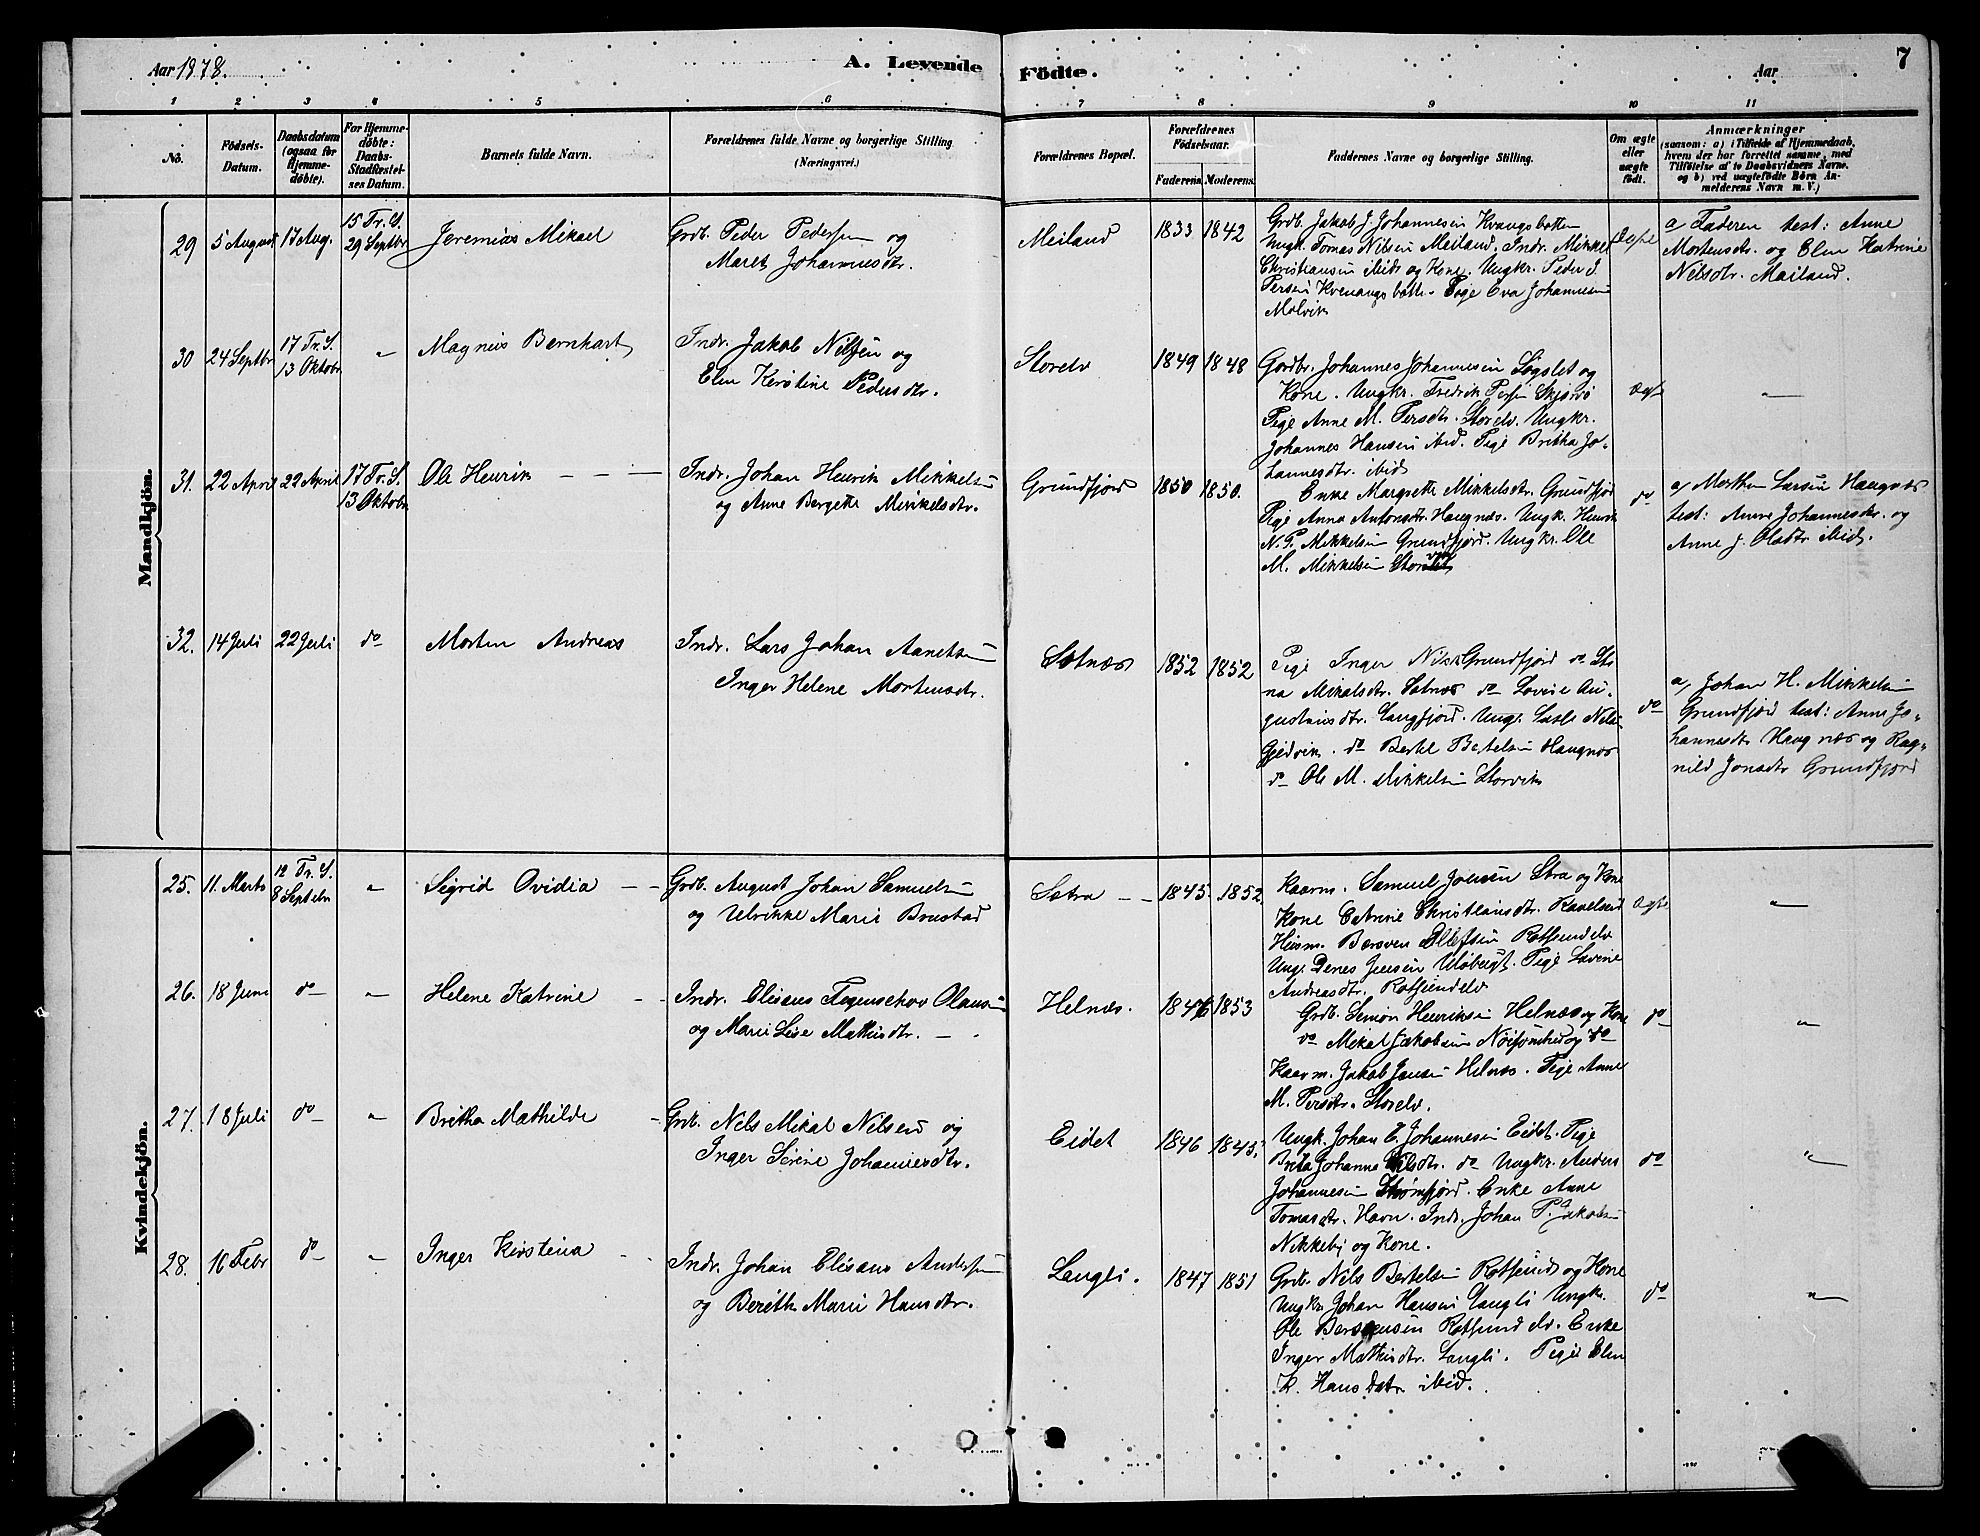 Aar 1878.
A. Levende Födte.
Aar
7
1 2 3 4 5 6 7 8 9 10 11
No.
Födsels-Datum.
Daabsdatum (ogsaa for Hjemme-döbte).
For Hjemme-döbte: Daabs-Stadfæstel-ses Datum.
Barnets fulde Navn.
Forældrenes fulde Navne og borgerlige Stilling
(Næringsvei.)
Forældrenes Bopæl.
Forældrenes Födselsaar.
Faderens. Moderens.
Faddernes Navne og borgerlige Stilling.
Om ægte eller uægte födt.
Anmærkninger
(saasom: a) i Tilfælde af Hjemmedaab,
hvem der har forrettet samme, med
Tilföielse af to Daabsvidners Navne.
og b) ved uægtefödte Börn An-
melderens Navn m. V.)
Mandkjön.
29 5 August 17 Aug. 15 Tr. S. 29 Septbr Jeremias Mikael
Grdb. Peder Pedersen og
Maret Johannesdtr.
Meiland 1833 1842
Grdb. Jakob J Johannesen Kvangsbotten
Ungk. Tomas Nilsen Meiland. Indr. Mikkel
Christiansen ibid og Kone. Ungkr. Peder J.
Persen Kvenangsbottn. Pige Eva Johannesen
Molvik
Ægte
a Faderen test: Anne
Mortensdtr. og Elen Katrine
Nilsdtr. Mailand.
30 24 Septbr 17 Tr. S. 13 Oktobr " Magnus Bernhart
Indr. Jakob Nilsen og
Elen Kerstine Pedersdtr.
Storelv 1849 1848
Gordbr. Johannes Johannesen Søgslet og
Kone. Ungkr. Fredrik Persen Skjervø
Pige Anne M. Persdtr. Storelv. Ungkr.
Johannes Hansen ibid. Pige Britha Jo-
hannesdtr. ibid
Ægte
"
31. 22 April 22 April 17 Tr. S. 13 Oktobr Ole Henrik
Indr. Johan Henrik Mikkelsen
og Anne Bergette Mikkelsdtr.
Grundfjord 1850 1850.
Enke Margrethe Mikkelsdtr. Grundfjord
Pige Anna Antonsdtr. Haugnæs. Ungk. Henrik
N. P. Mikkelsen Grundfjord. Ungkr. Ole
M. Mikkelsen Storvik
do
a/ Morthen Larsen Haugnæs
test: Anne Johannesdtr. og
Anne J. Olsdtr ibid.
32. 14 Juli 22 Juli do Morten Andreas
Indr. Lars Johan
Inger Helene Mortensdtr.
Sotnæs 1852 1852
Pige Inger Nils Grundfjord do Sti
na Mikalsdtr. Sotnæs do Lovise Au-
gustinusdtr. Langfjord. Ungk. Lasle Nils
Gjedvik. do Bertel Bertelsen Haugnæs
do Ole M. Mikkelsen Storvik
do
a/ Johan H. Mikkelsen
Grundfjord test: Anne Jo-
hannesdtr Haugnæs og Rag-
nild Jonsdtr Grundfjord
Kvindekjön.
25. 11. Marts 12 Tr. S. 8 Septebr " Sigrid Ovidia
Grdb. August Johan Samuelsen
og Ulrikke Marie Brustad
Sotra 1845. 1852
Kaarm. Samuel Joensen Stra og Kone
Kone Catrine Christiansdtr. Ravelseid
Husm. Bærsven Ellefsen Rotsundelv
Ungk. Denes Jensen Uløbugt. Pige Lovine
Andreasdtr. Rotsundelv
Ægte
"
26. 18 Juni do " Helene Katrine
Indr. Elisæus Olausen
og Marie Lise Mathisdtr.
Helnæs. 1846 1853
Grdb. Simon Henriksen Helnæs og Kone
do Mikal Jakobsen og do
Kaarm. Jakob Jensen Helnæs. Pige Anne
M. Persdtr. Storelv.
do
"
27. 18 Juli do " Britha Mathilde
Grb. Nels Mikal Nilsen og
Inger Serine Johannesdtr.
Eidet 1846 1845.
Ungk. Johan E. Johannesen Eidet. Pige
Brita Johanna Nilsdtr. do Ungkr. Anders
Johannesen Strømfjord. Enke Anne
Tomasdtr. Havn. Indr. Johan P. Jakobsen
Nikkeby og Kone.
do
"
28. 16 Febr do " Inger Kirstina
Indr. Johan Elisæus Andersen
og Berith Marie Hansdtr.
Langli. 1847 1851
Grdb. Nils Bertelsen Rotsund og Kone
Ungkr Johan Hansen Langli Ungkr.
Ole Bersvensen Rotsundelv. Enke
Inger Mathisdtr. Langli. Pige Elen
K. Hansdatr ibid.
do
"